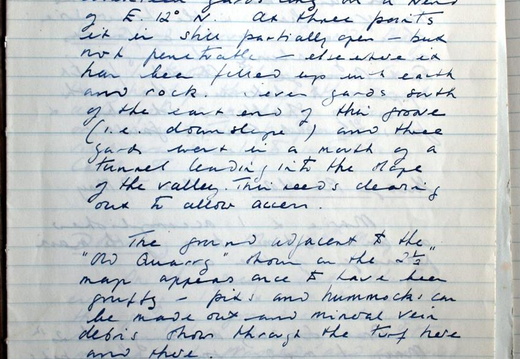 yards long on a bend
of E. 12° N. At three points
it is still partially open - but
not penetrable - elsewhere it
has been filled up with earth
and rock. Seven yards south
of the east end of this groove
(i.e. downslope) and three
yards west is a mouth of a
tunnel leading into the slope
of the valley. This needs clearing
out to allow access.
The ground adjacent to the
"Old Quarry" shown on the 2½"
map appears once to have been
gruffy - pits and hummocks can
be made out and mineral vein
debris shows through the turf here
and there.